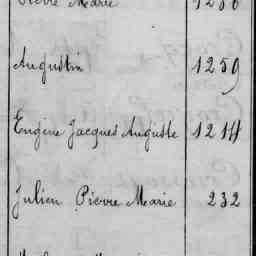 Pierre Marie
Augustin 1259
Eugène Jacques Auguste 1214
Julien Pierre Marie 232